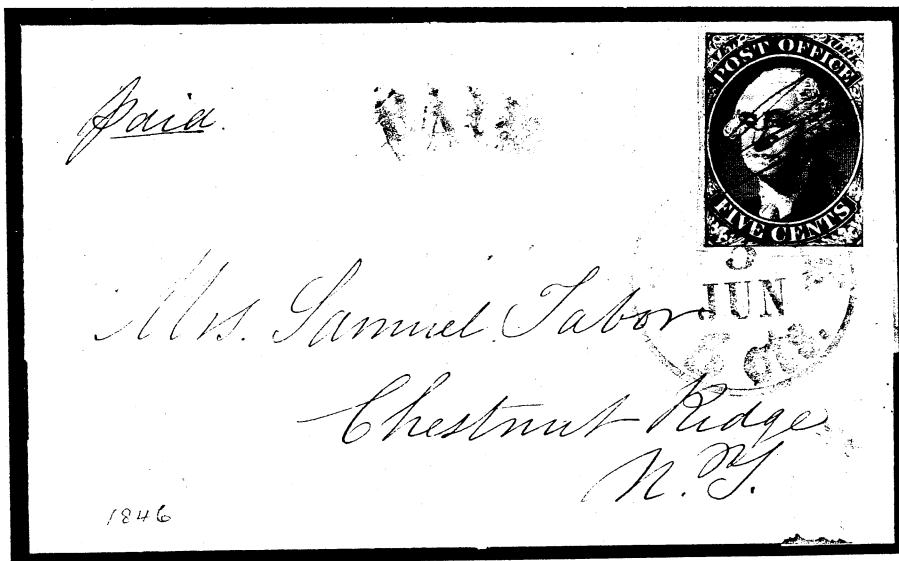 paid.
PAID
NEW YORK
POST OFFICE
FIVE CENTS
5
JUN
5 cts.
Mrs. Samuel Tabor
Chestnut Ridge
N. Y.
1846